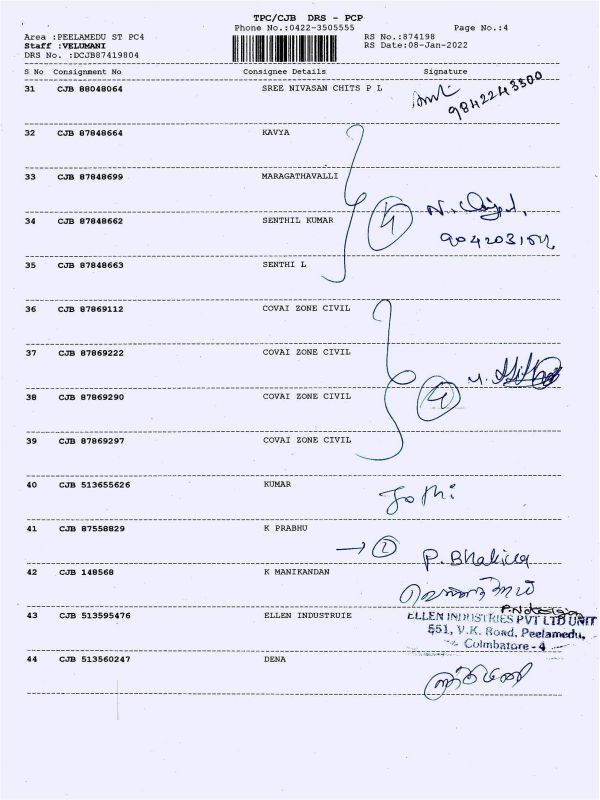 TPC/CJB DRS - PCP
Phone No.:0422-3505555 Page No.:4
Area :PEELAMEDU ST PC4 RS No.:874198
Staff :VELUMANI RS Date:08-Jan-2022
DRS No. :DCJB87419804
S No Consignment No Consignee Details Signature
31 CJB 88048064 SREE NIVASAN CHITS P L
9842243300
32 CJB 87848664 KAVYA
33 CJB 87848699 MARAGATHAVALLI
34 CJB 87848662 SENTHIL KUMAR 4
35 CJB 87848663 SENTHI L
36 CJB 87869112 COVAI ZONE CIVIL
37 CJB 87869222 COVAI ZONE CIVIL
38 CJB 87869290 COVAI ZONE CIVIL 4
39 CJB 87869297 COVAI ZONE CIVIL
40 CJB 513655626 KUMAR Jothi
41 CJB 87558829 K PRABHU
42 CJB 148568 K MANIKANDAN
43 CJB 513595476 ELLEN INDUSTRUIE
ELLEN INDUSTRIES PVT LTD UNIT
551, V.K. Road, Peelamedu,
Coimbatore - 4
44 CJB 513560247 DENA